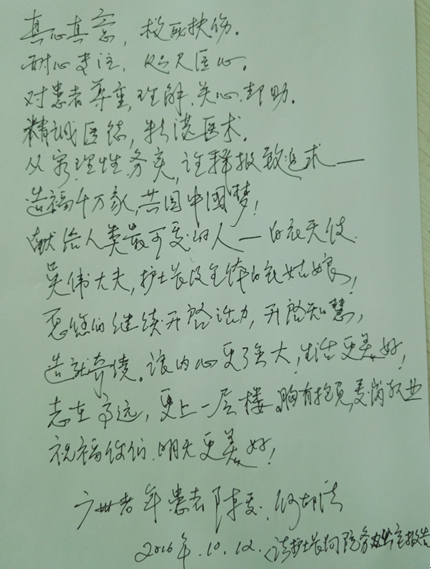 真心真意，救死扶伤。
耐心专注，父母医心。
对患者尊重，理解，关心，帮助。
精诚医德，精湛医术。
从容理性务实，诠释报效追求——
造福千万家，共圆中国梦！
献给人类最可爱的人——白衣天使
吴伟大夫，护士长及全体白衣姑娘，
愿您们继续开启活力，开启智慧，
造就奇绩。让内心更强大，生活更美好！
志在高远，更上一层楼，胸有抱负，爱岗敬业
祝福你们，明天更美好！
广州老年患者 陈
2016年.10.12. 请护士长向院务办公室报告